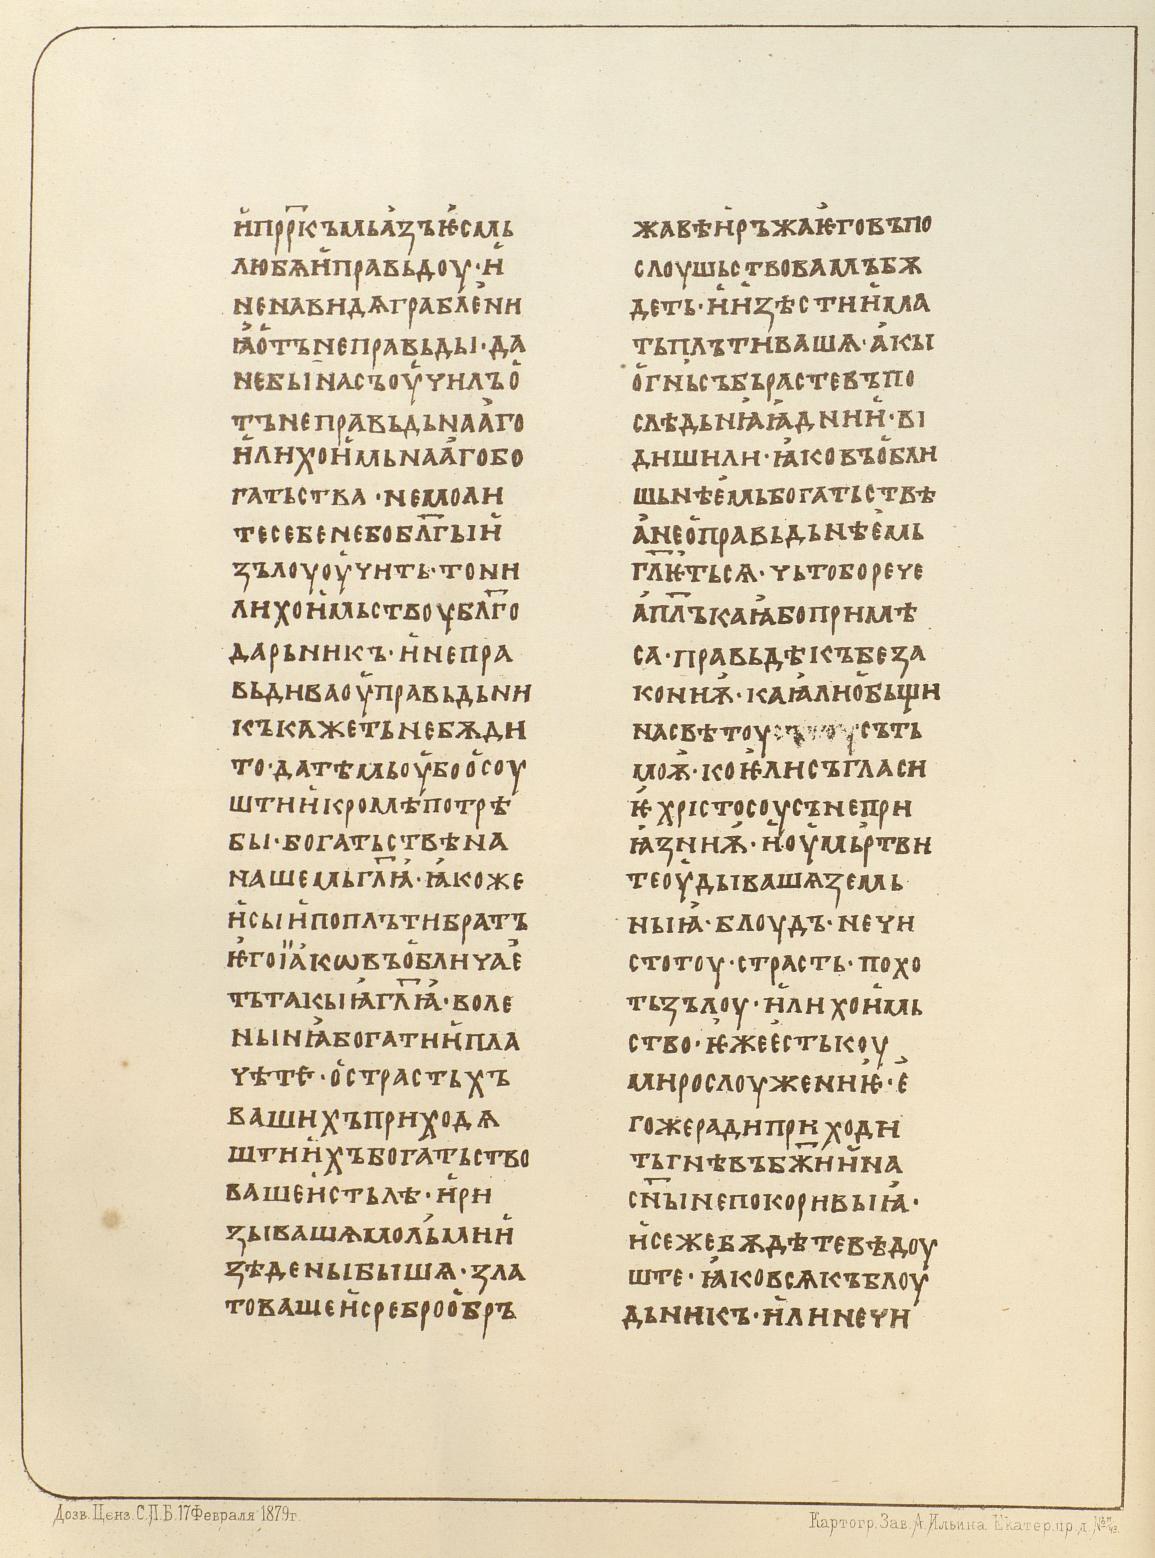 и҆прр҃къмьа҆зъѥ҆смь
любѧи҆правьдоу·и҆
ненавидѧграбл҄ени
ꙗ҆о҆тънеправьды·да
небынасъоу҆чилъо҆
тънеправьдьнаа҆го
и҆лихои҆мьнаа҆гобо
гатьства·немоли
тесебенебобл҃гыи҆
зълоуоу҆чить·тони
лихои҆мьствоубл҃го
дарьникъ·и҆непра
вьдиваоу҆правьдьни
къкажетьнебѫди
то·датѣмьоу҆боо҆соу
штии҆кромѣпотрѣ
бы·богатьствѣна
нашемьгл҃ѭ·ꙗ҆коже
и҆сыи҆поплътибратъ
ѥ҆гоꙇа҆кѡвъо҆бличае҆
тьтакыѩ҆гл҃ѩ҆·воле
нынꙗ҆богатии҆пла
чѣте·о҆страстьхъ
вашихъприходѧ
штии҆хъбогатьство
вашеи҆стьлѣ·и҆ри
зывашѧмол҄ьмии҆
зѣденыбышѧ·зла
товашеи҆сребр
оо҆бръ
жавѣи҆ръжаѥ҆говъпо
слоушьствовамъбѫ
деть·и҆и҆зѣстии҆ма
тьплътивашѧ·а҆кы
о҆гн҄ьсъбьрастевъпо
слѣдьнѩꙗ҆дьнии҆·ві
дишили·ꙗ҆ковъо҆бли
шьнѣе҆мьбогатьствѣ
а҆нео҆правьдьнѣе҆мь
гл҃ѥ҆тьсѧ·чьтоборече
а҆пл҃ъкаꙗ҆боприѩѣ
са·правьдѣкъбеза
кониѭ҆·каꙗ҆лио҆бьщи
насвѣтоу
сьть
моѭ҆·коѥ҆лисъгласи
ѥ҆хрістосоусънепри
ꙗ҆зниѭ҆·и҆оу҆мьртви
теоу҆дывашѧземь
ныѩ҆·блоудъ·нечи
стотоу·страсть·похо
тьзълоу·и҆лихои҆мь
ство·ѥ҆жее҆стькоу
мирослоужениѥ҆·е҆
гожерадиприходи
тьгнѣвъбж҃ии҆на
сн҃ынепокоривыѩ҆·
и҆сежебѫдѣтевѣдоу
ште·ꙗ҆ковсѧкъблоу
дьникъ·и҆линечи
Дозв. Ценз. С.П.Б. 17 Февраля 1879 г.
Картогр. Зав. А. Ильина. Екатер. пр. д.